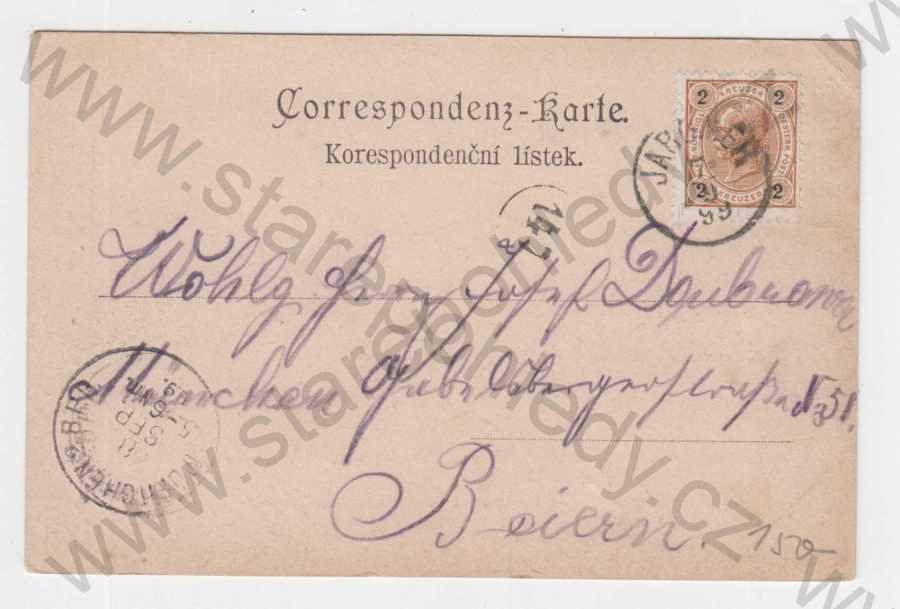 Correspondenz-Karte.
Korespondenční lístek.
2 KREUZER 2
2 KREUZER 2
JAR
99
14
Wohlg Herrn Josef Doubrawa
München Gabelsbergerstraße N 51.
Beiern.
MÜNCHEN 2 B.I.D
8 SEP
5-6 Nm.
150-
www.starepohledy.cz